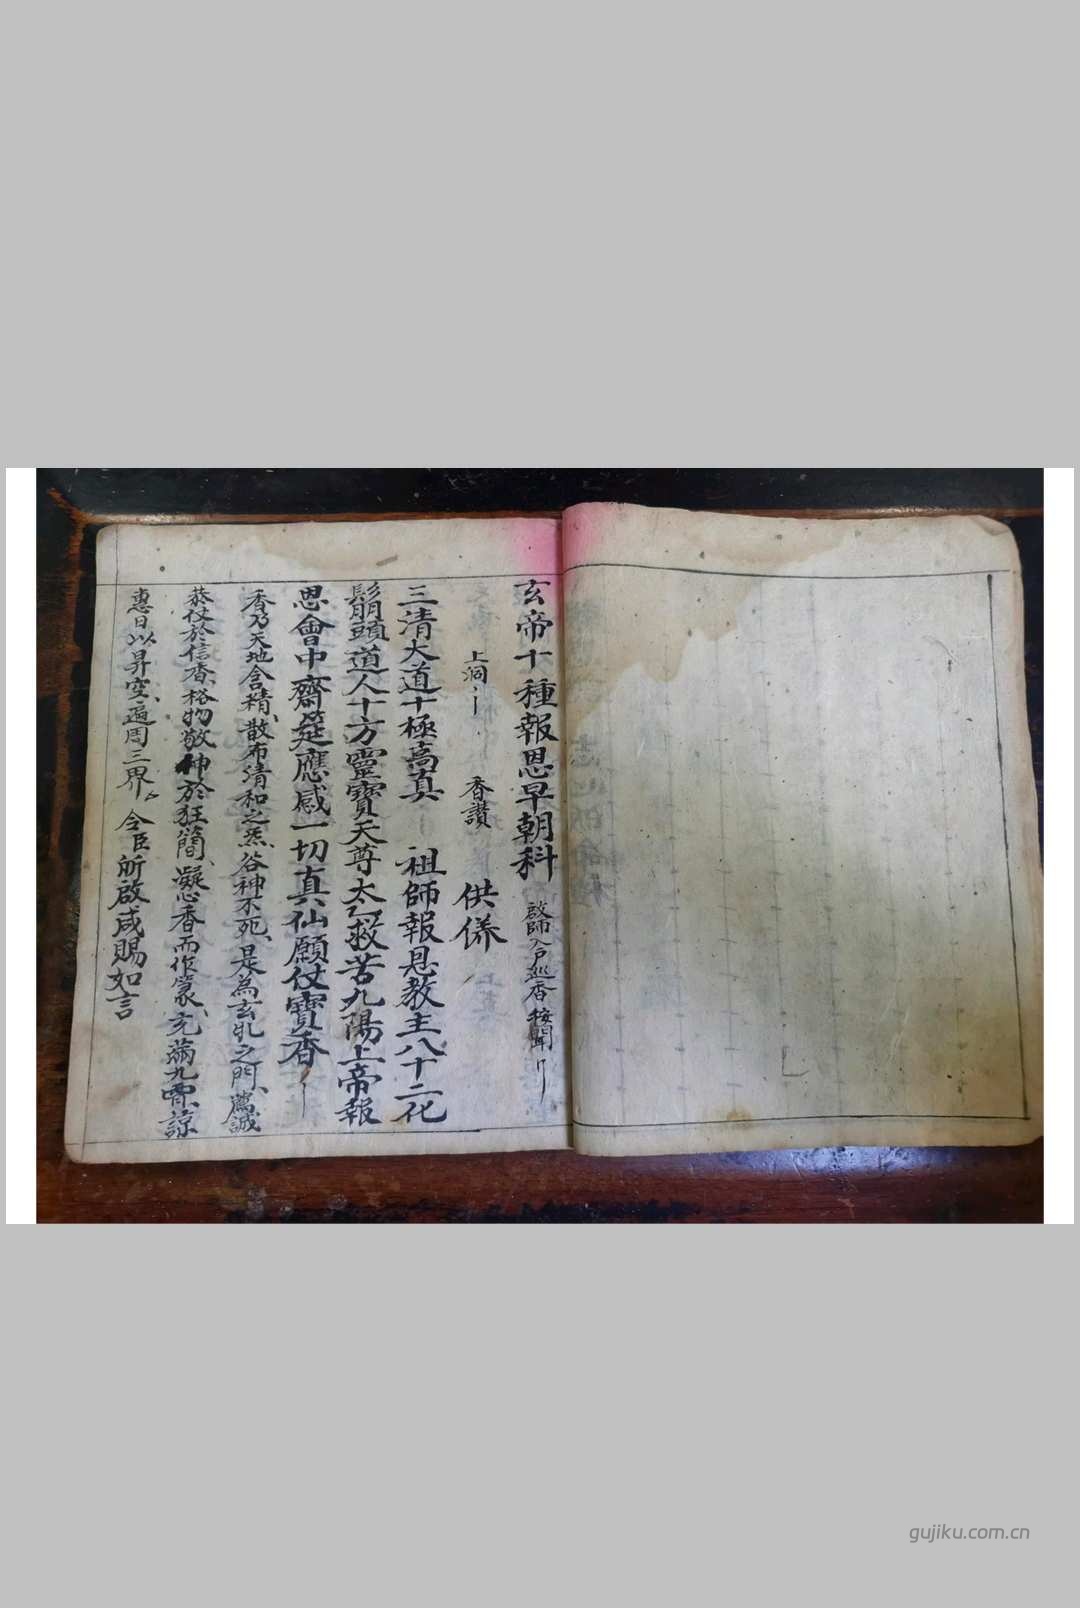 玄帝十種報恩早朝科 啟師入戶巡香 按聞
上洞 香讃 供養
三清大道十極高真 祖師報恩教主八十二化
鬅頭道人十方靈寶天尊太乙救苦九陽上帝報
恩會中齋筵應感一切真仙願仗寶香
香乃天地含精、散布清和之炁、谷神不死、是為玄牝之門、薦誠
恭仗於信香、格物敬神於狂簡、凝香而作篆、充滿九霄、諒
惠日以昇空、遍周三界。 令臣所啟咸賜如言
gujiku.com.cn